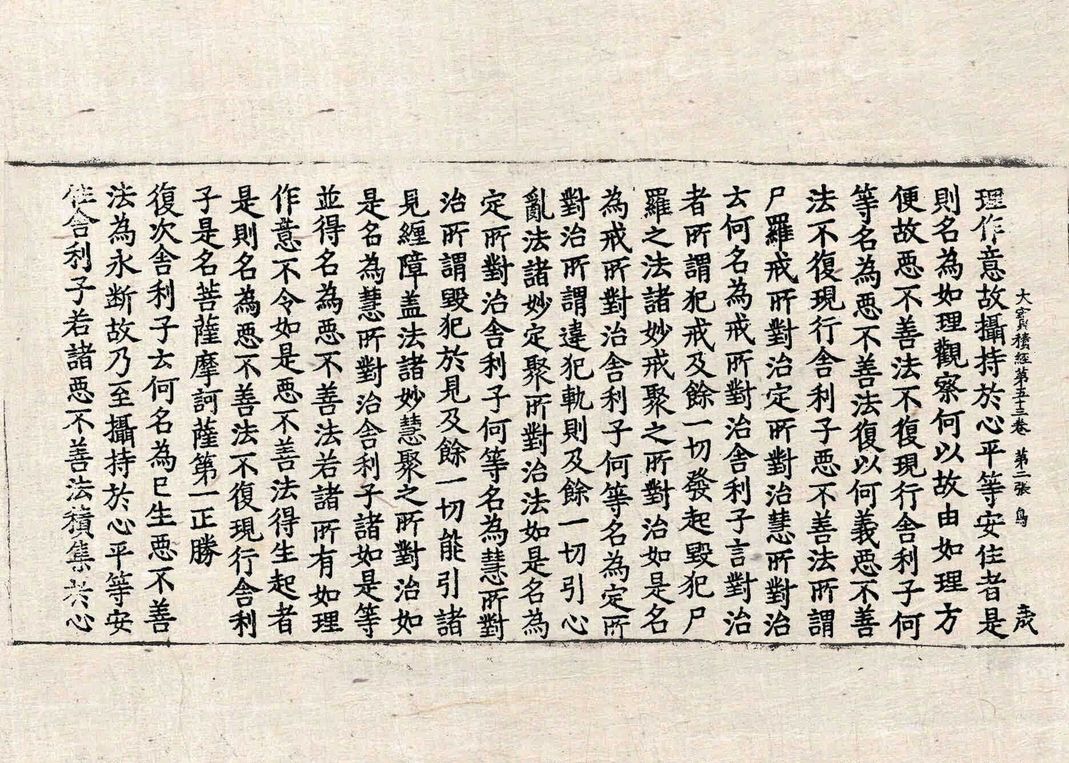 大寳積經第五十三卷 第二張 鳥
理作意故攝持於心平等安住者是
則名為如理觀察何以故由如理方
便故悪不善法不復現行舍利子何
等名為悪不善法復以何義悪不善
法不復現行舍利子悪不善法所謂
尸羅戒所對治定所對治慧所對治
云何名為戒所對治舍利子言對治
者所謂犯戒及餘一切發起毀犯尸
羅之法諸妙戒聚之所對治如是名
為戒所對治舍利子何等名為定所
對治所謂違犯軌則及餘一切引心
亂法諸妙定聚所對治法如是名為
定所對治舍利子何等名為慧所對
治所謂毀犯於見及餘一切能引諸
見纏障盖法諸妙慧聚之所對治如
是名為慧所對治舍利子諸如是等
並得名為悪不善法若諸所有如理
作意不令如是悪不善法得生起者
是則名為悪不善法不復現行舍利
子是名菩薩摩訶薩第一正勝
復次舍利子云何名為已生悪不善
法為永断故乃至攝持於心平等安
住舍利子若諸悪不善法積集於心